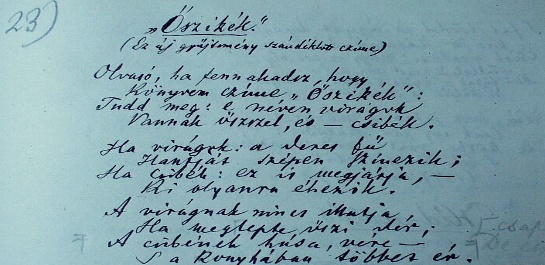 23)
„Őszikék."
(Ez új gyűjtemény szándéklott czíme)
Olvasó, ha fennakadsz, hogy
Könyvem czíme „Őszikék":
Tudd meg: e néven virágok
Vannak őszszel, és — csibék.
Ha virágok: a deres fű
Hantját szépen színezik;
Ha csibék: ez is megjárja, —
Ki olyanra éhezik.
A virágnak nincs illatja,
Ha meglepte őszi dér;
A csibének húsa, vére —
S a konyhában többet ér.